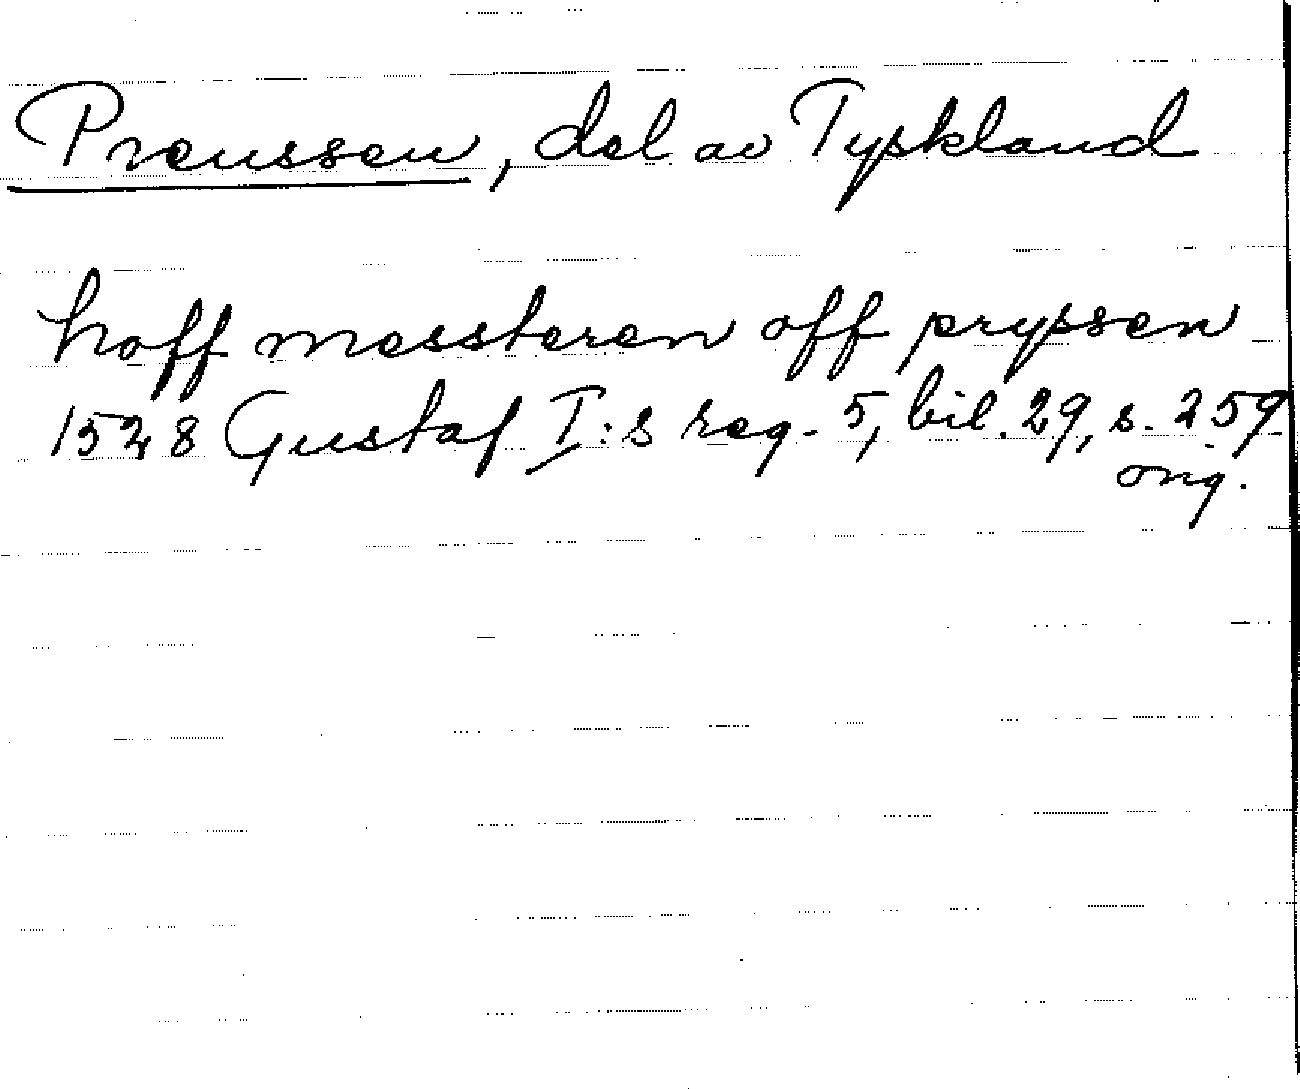 Preussen, del av Tyskland
hoff messteren off pryssen
1528 Gustaf I:s reg. 5, bil. 29, s. 259
orig.